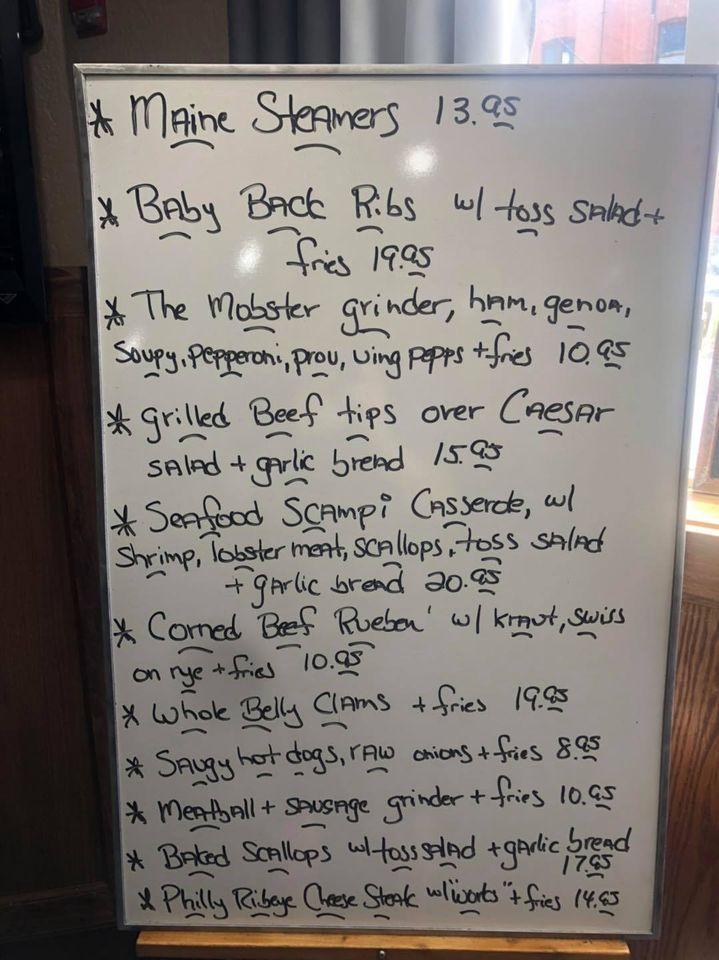 * Maine Steamers 13.95
* Baby Back Ribs w/ toss salad +
fries 19.95
* The Mobster grinder, ham, genoa,
Soupy, pepperoni, prov, ving pepps + fries 10.95
* grilled Beef tips over Caesar
salad + garlic bread 15.95
* Seafood Scampi Casserole, w/
Shrimp, lobster meat, scallops, toss salad
+ garlic bread 20.95
* Corned Beef Rueben' w/ kraut, swiss
on rye + fries 10.95
* Whole Belly Clams + fries 19.95
* Saugy hot dogs, raw onions + fries 8.95
* Meatball + sausage grinder + fries 10.95
* Baked Scallops w/ toss salad + garlic bread
17.95
* Philly Ribeye Cheese Steak w/ "works" + fries 14.95